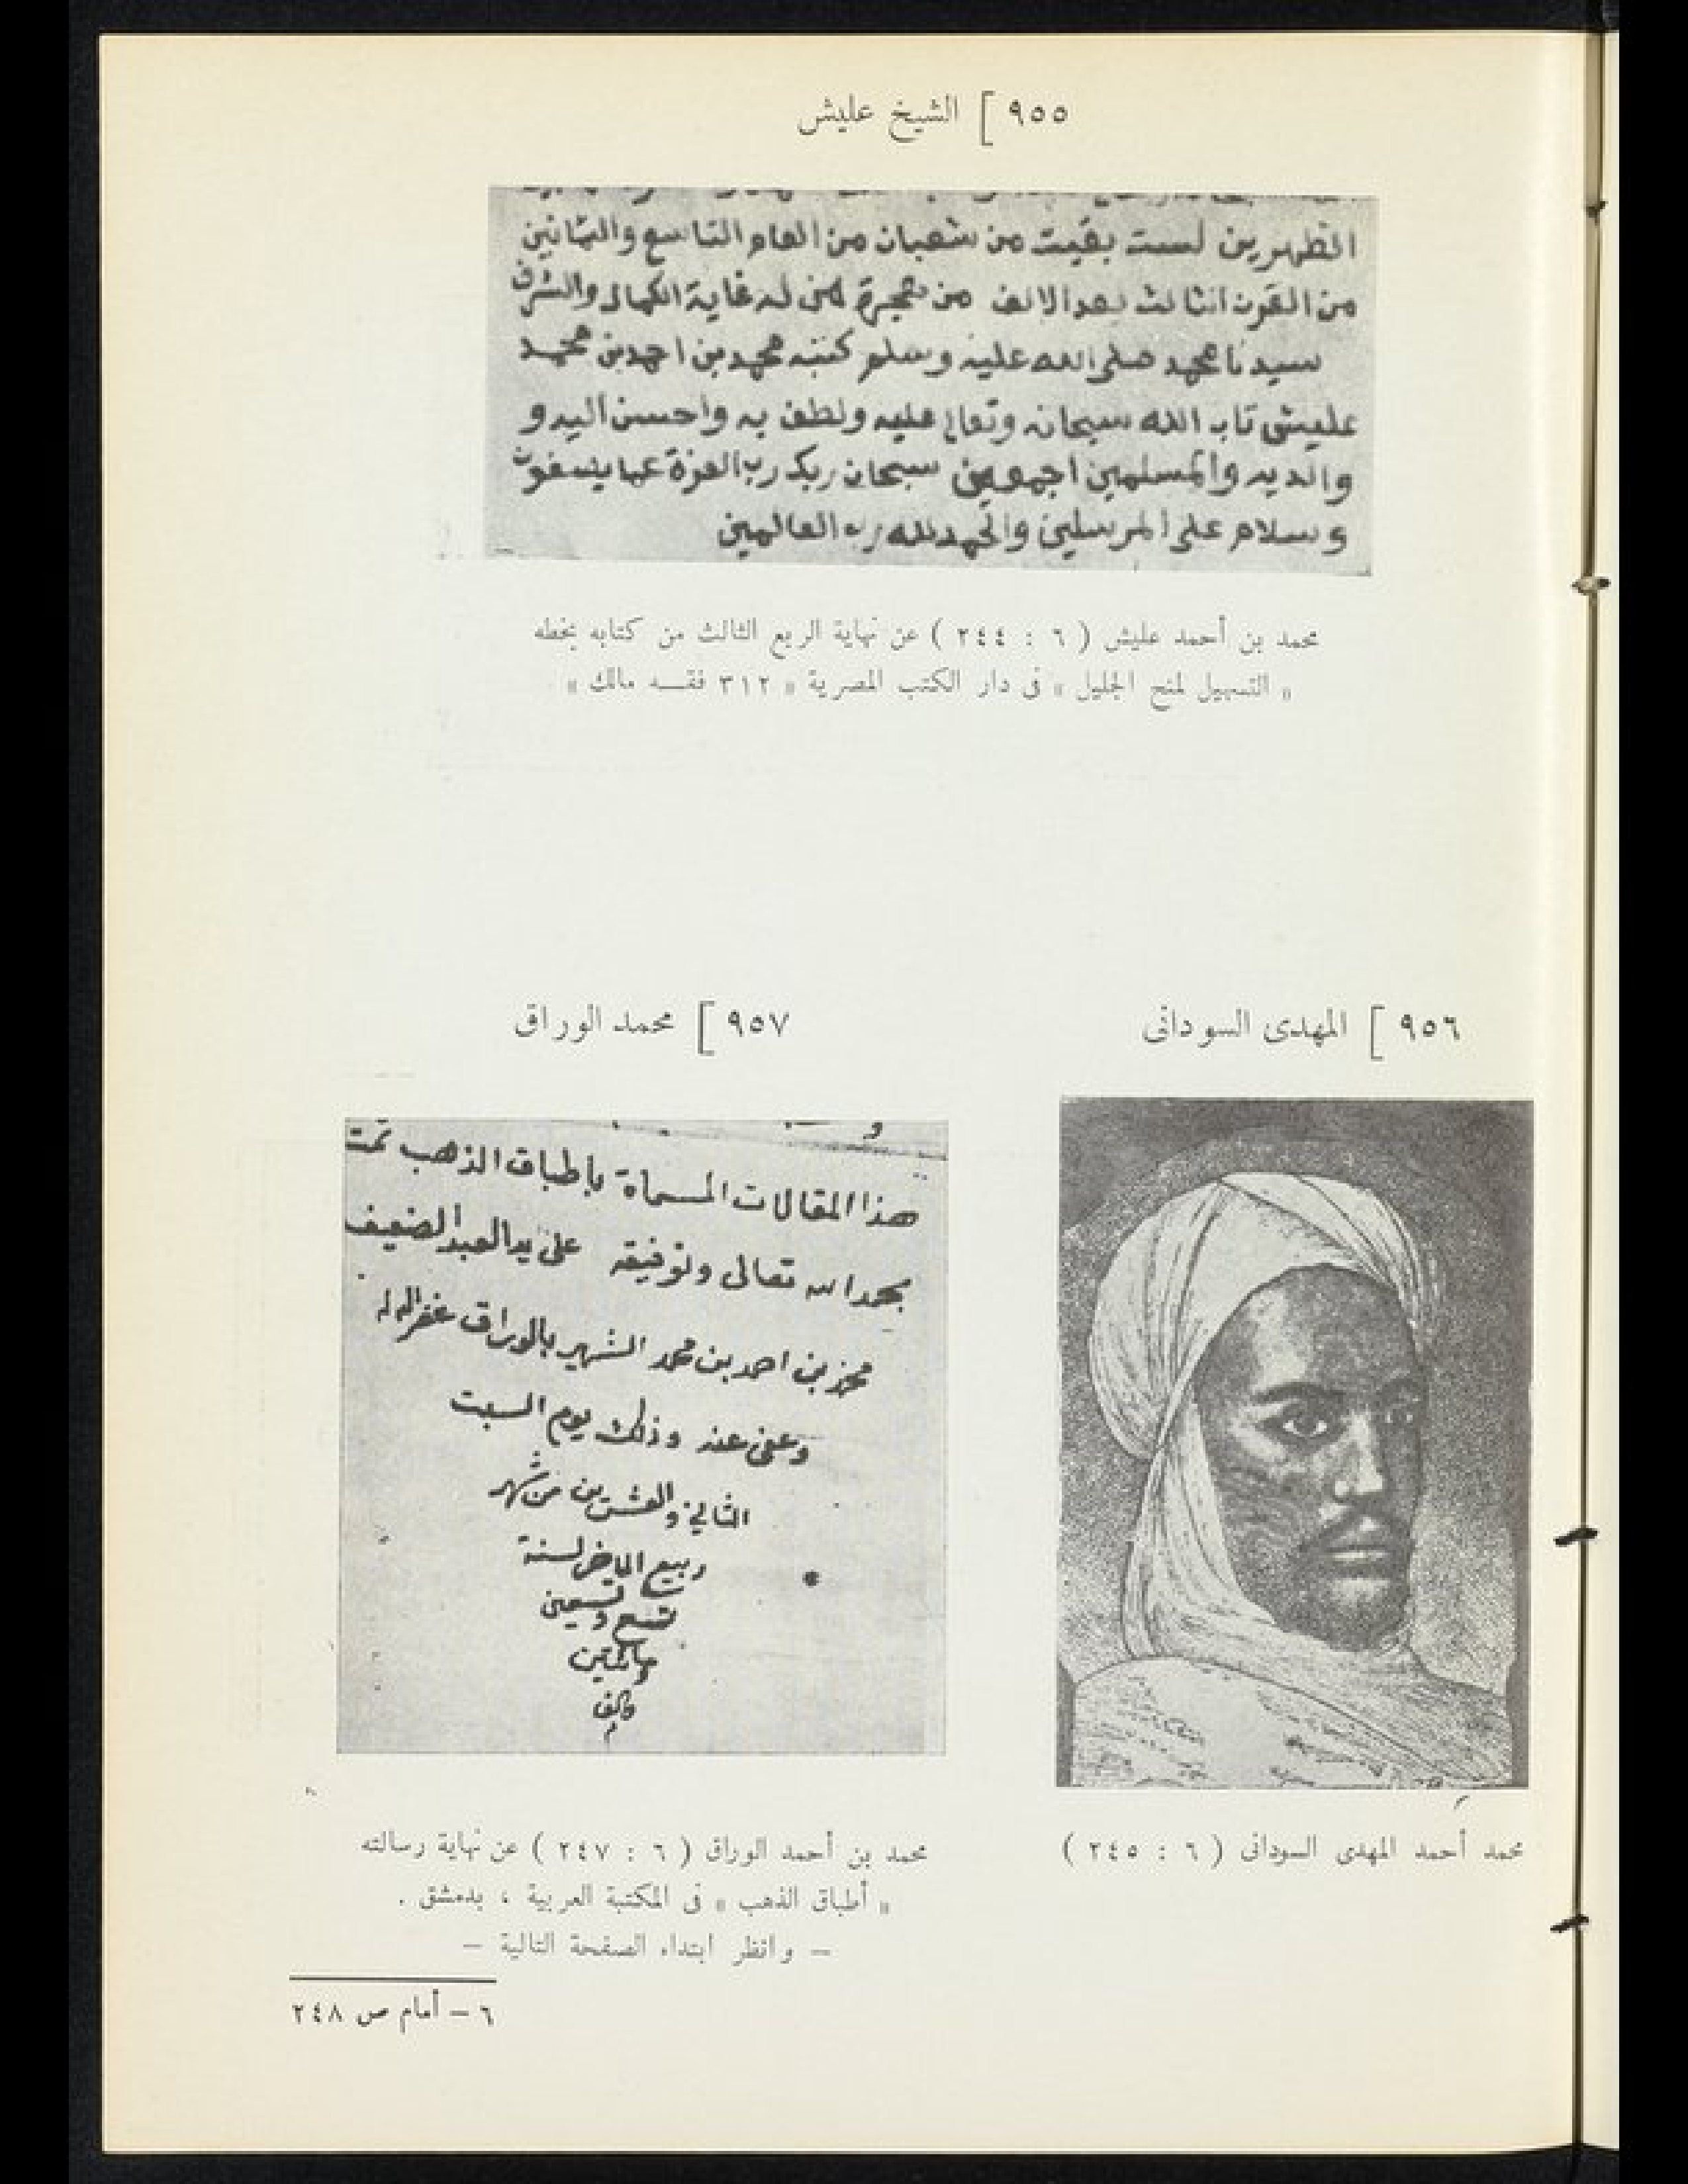 ٩٥٥ [ الشيخ عليش
الظهرين لست بقيت من شعبان من العام التاسع والثمانين
من القرن الثالث بعد الالف من هجرة من له غاية الكمال والشرف
سيدنا محمد صلى الله عليه وسلم كتبه محمد بن احمد بن محمد
عليش تاب الله سبحانه وتعالى عليه ولطف به واحسن اليه و
والديه والمسلمين اجمعين سبحان ربك رب العزة عما يصفون
وسلام على المرسلين والحمد لله رب العالمين
محمد بن أحمد عليش ( ٦ : ٢٤٤ ) عن نهاية الربع الثالث من كتابه بخطه
« التسهيل لمنح الجليل » فى دار الكتب المصرية « ٣١٢ فقـــه مالك »
٩٥٦ [ المهدى السودانى
محمد أحمد المهدى السودانى ( ٦ : ٢٤٥ )
٩٥٧ [ محمد الوراق
هذا المقالات المسماة باطباق الذهب تمت
بحمد الله تعالى وتوفيقه على يد العبد الضعيف
بن احمد بن محمد الشهير بالوراق غفر الله له
وعفى عنه وذلك يوم السبت
الثاني والعشرين من شهر
ربيع الاخر لسنة
تسع وتسعين
ومائتين
والف
محمد بن أحمد الوراق ( ٦ : ٢٤٧ ) عن نهاية رسالته
« أطباق الذهب » فى المكتبة العربية ، بدمشق .
– وانظر ابتداء الصفحة التالية –
٦ – أمام ص ٢٤٨